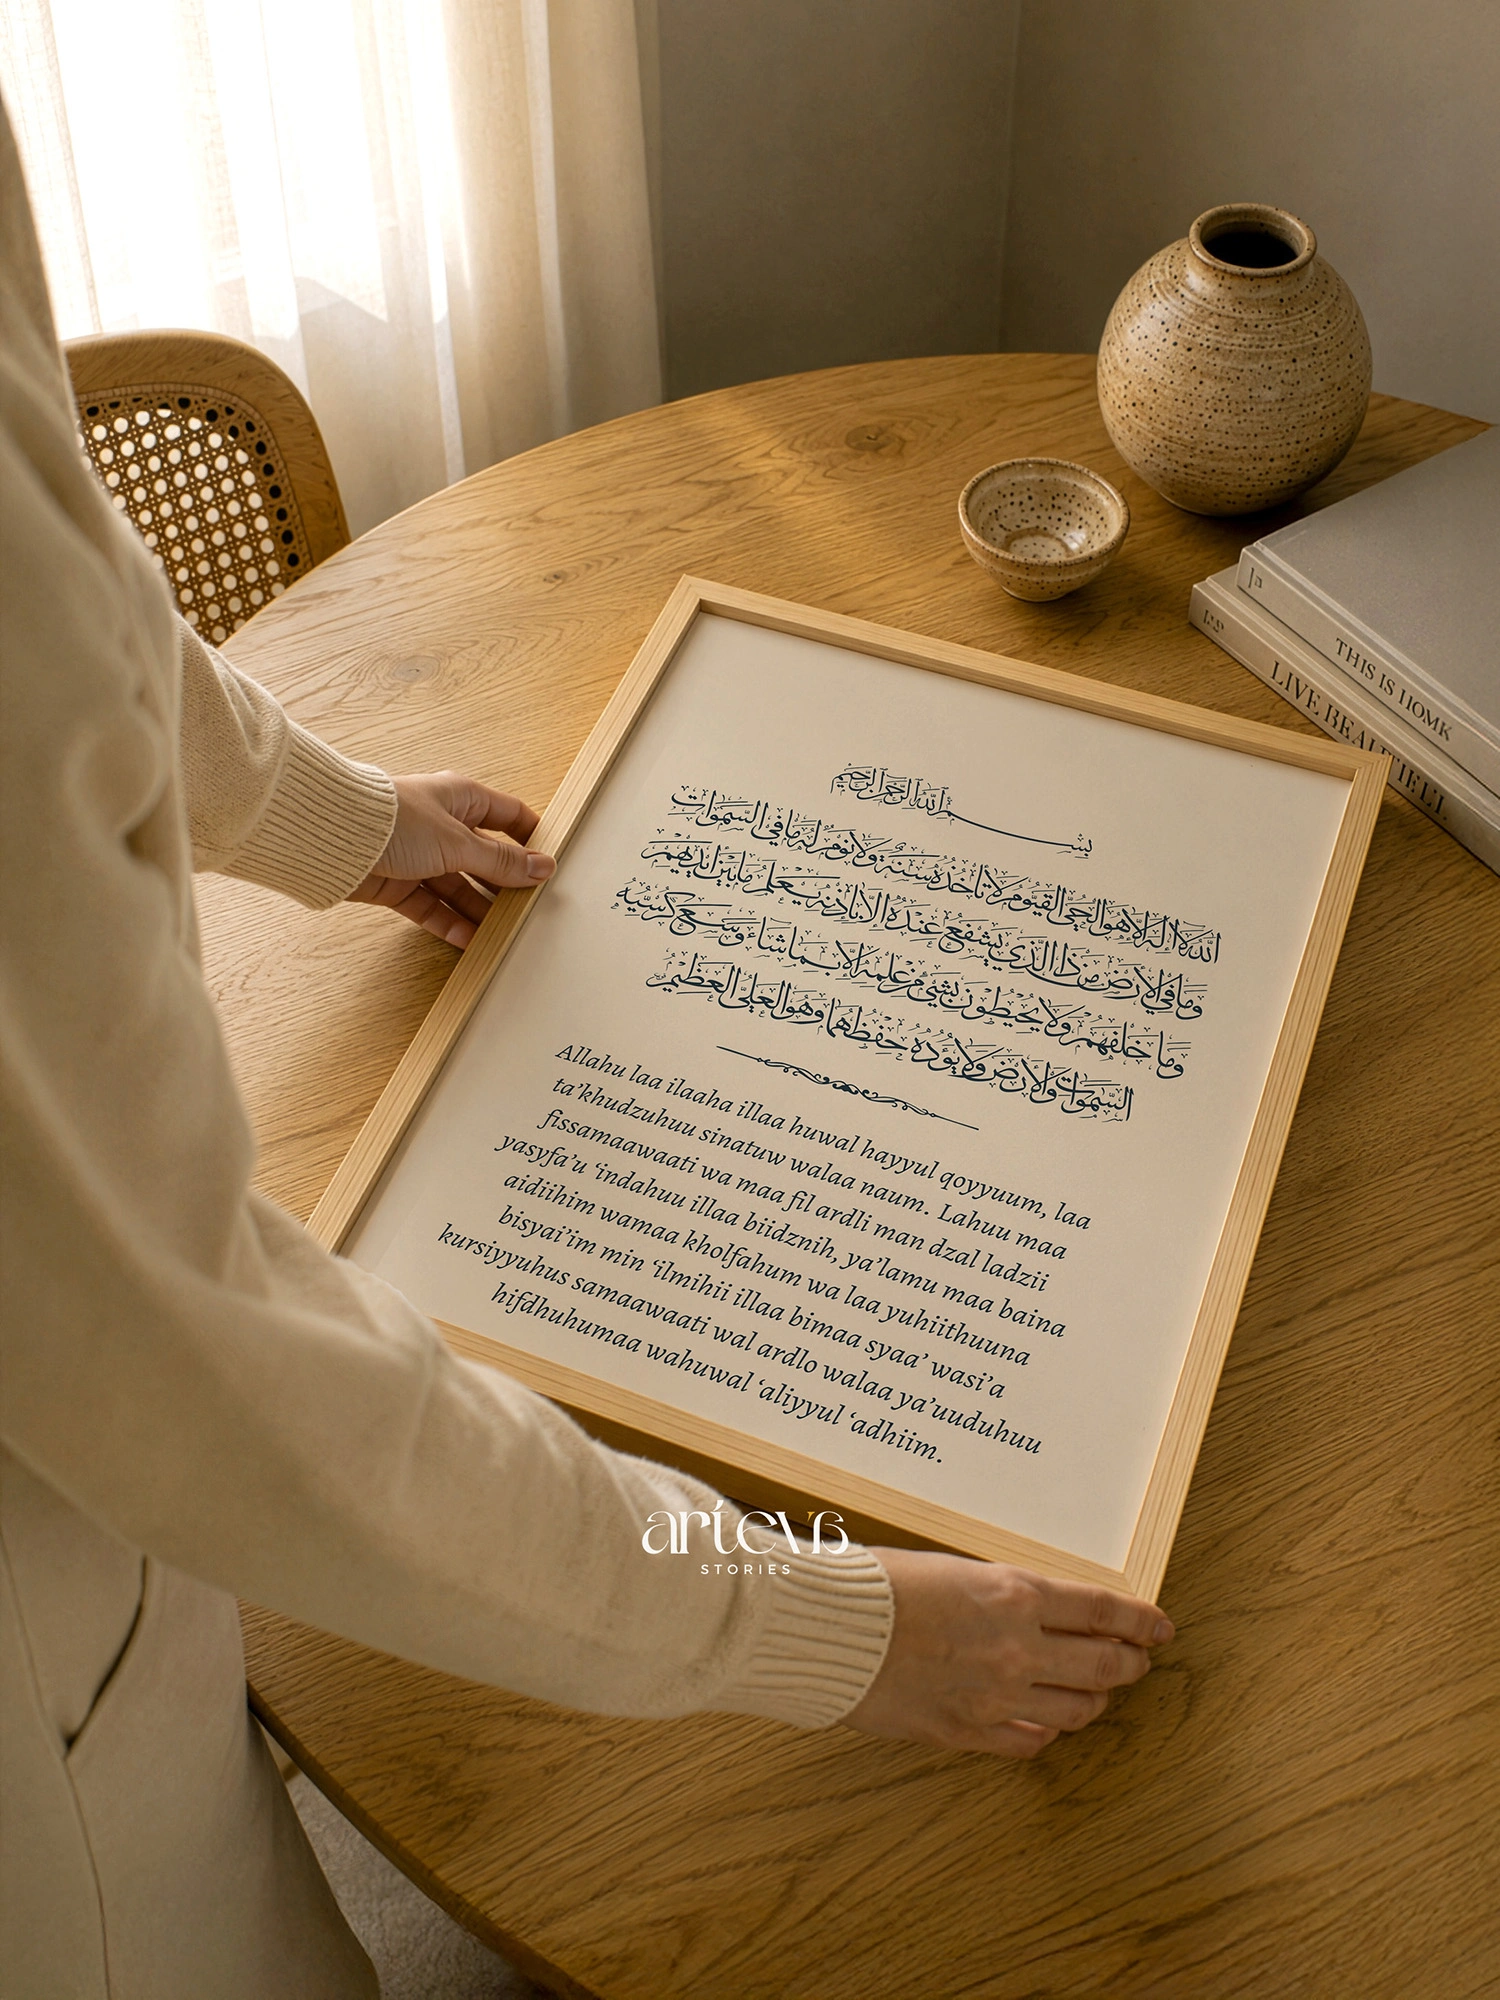 بسم الله الرحمن الرحيم
الله لا إله إلا هو الحي القيوم لا تأخذه سنة ولا نوم له ما في السموات
وما في الأرض من ذا الذي يشفع عنده إلا بإذنه يعلم ما بين أيديهم
وما خلفهم ولا يحيطون بشيء من علمه إلا بما شاء وسع كرسيه
السموات والأرض ولا يؤده حفظهما وهو العلي العظيم
Allahu laa ilaaha illaa huwal hayyul qoyyuum, laa
ta'khudzuhuu sinatuw walaa naum. Lahuu maa
fissamaawaati wa maa fil ardli man dzal ladzii
yasyfa'u 'indahuu illaa biidznih, ya'lamu maa baina
aidiihim wamaa kholfahum wa laa yuhiithuuna
bisyai'im min 'ilmihii illaa bimaa syaa' wasi'a
kursiyyuhus samaawaati wal ardlo walaa ya'uuduhuu
hifdhuhumaa wahuwal 'aliyyul 'adhiim.
THIS IS HOMK
LIVE
arteva
STORIES